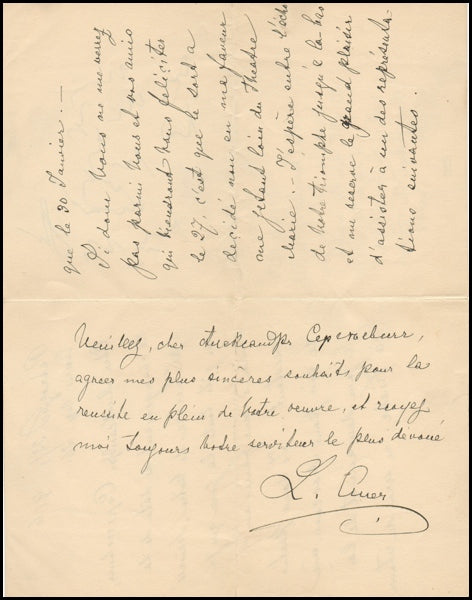 que le 30 Janvier. —
Si donc Vous ne me voyez
pas parmi Vous et vos amis
qui viendront Vous féliciter
le 27, c'est que le sort a
décidé non en ma faveur
me jetant loin du Théâtre
Marie. — J'espère entendre l'écho
de Votre triomphe jusque là-bas
et me réserve le grand plaisir
d'assister à un des représenta-
tions suivantes.
Veuillez, cher Александръ Сергѣевичъ,
agréer mes plus sincères souhaits pour la
réussite en plein de Votre oeuvre, et croyez
moi toujours Votre serviteur le plus dévoué
L. Auer